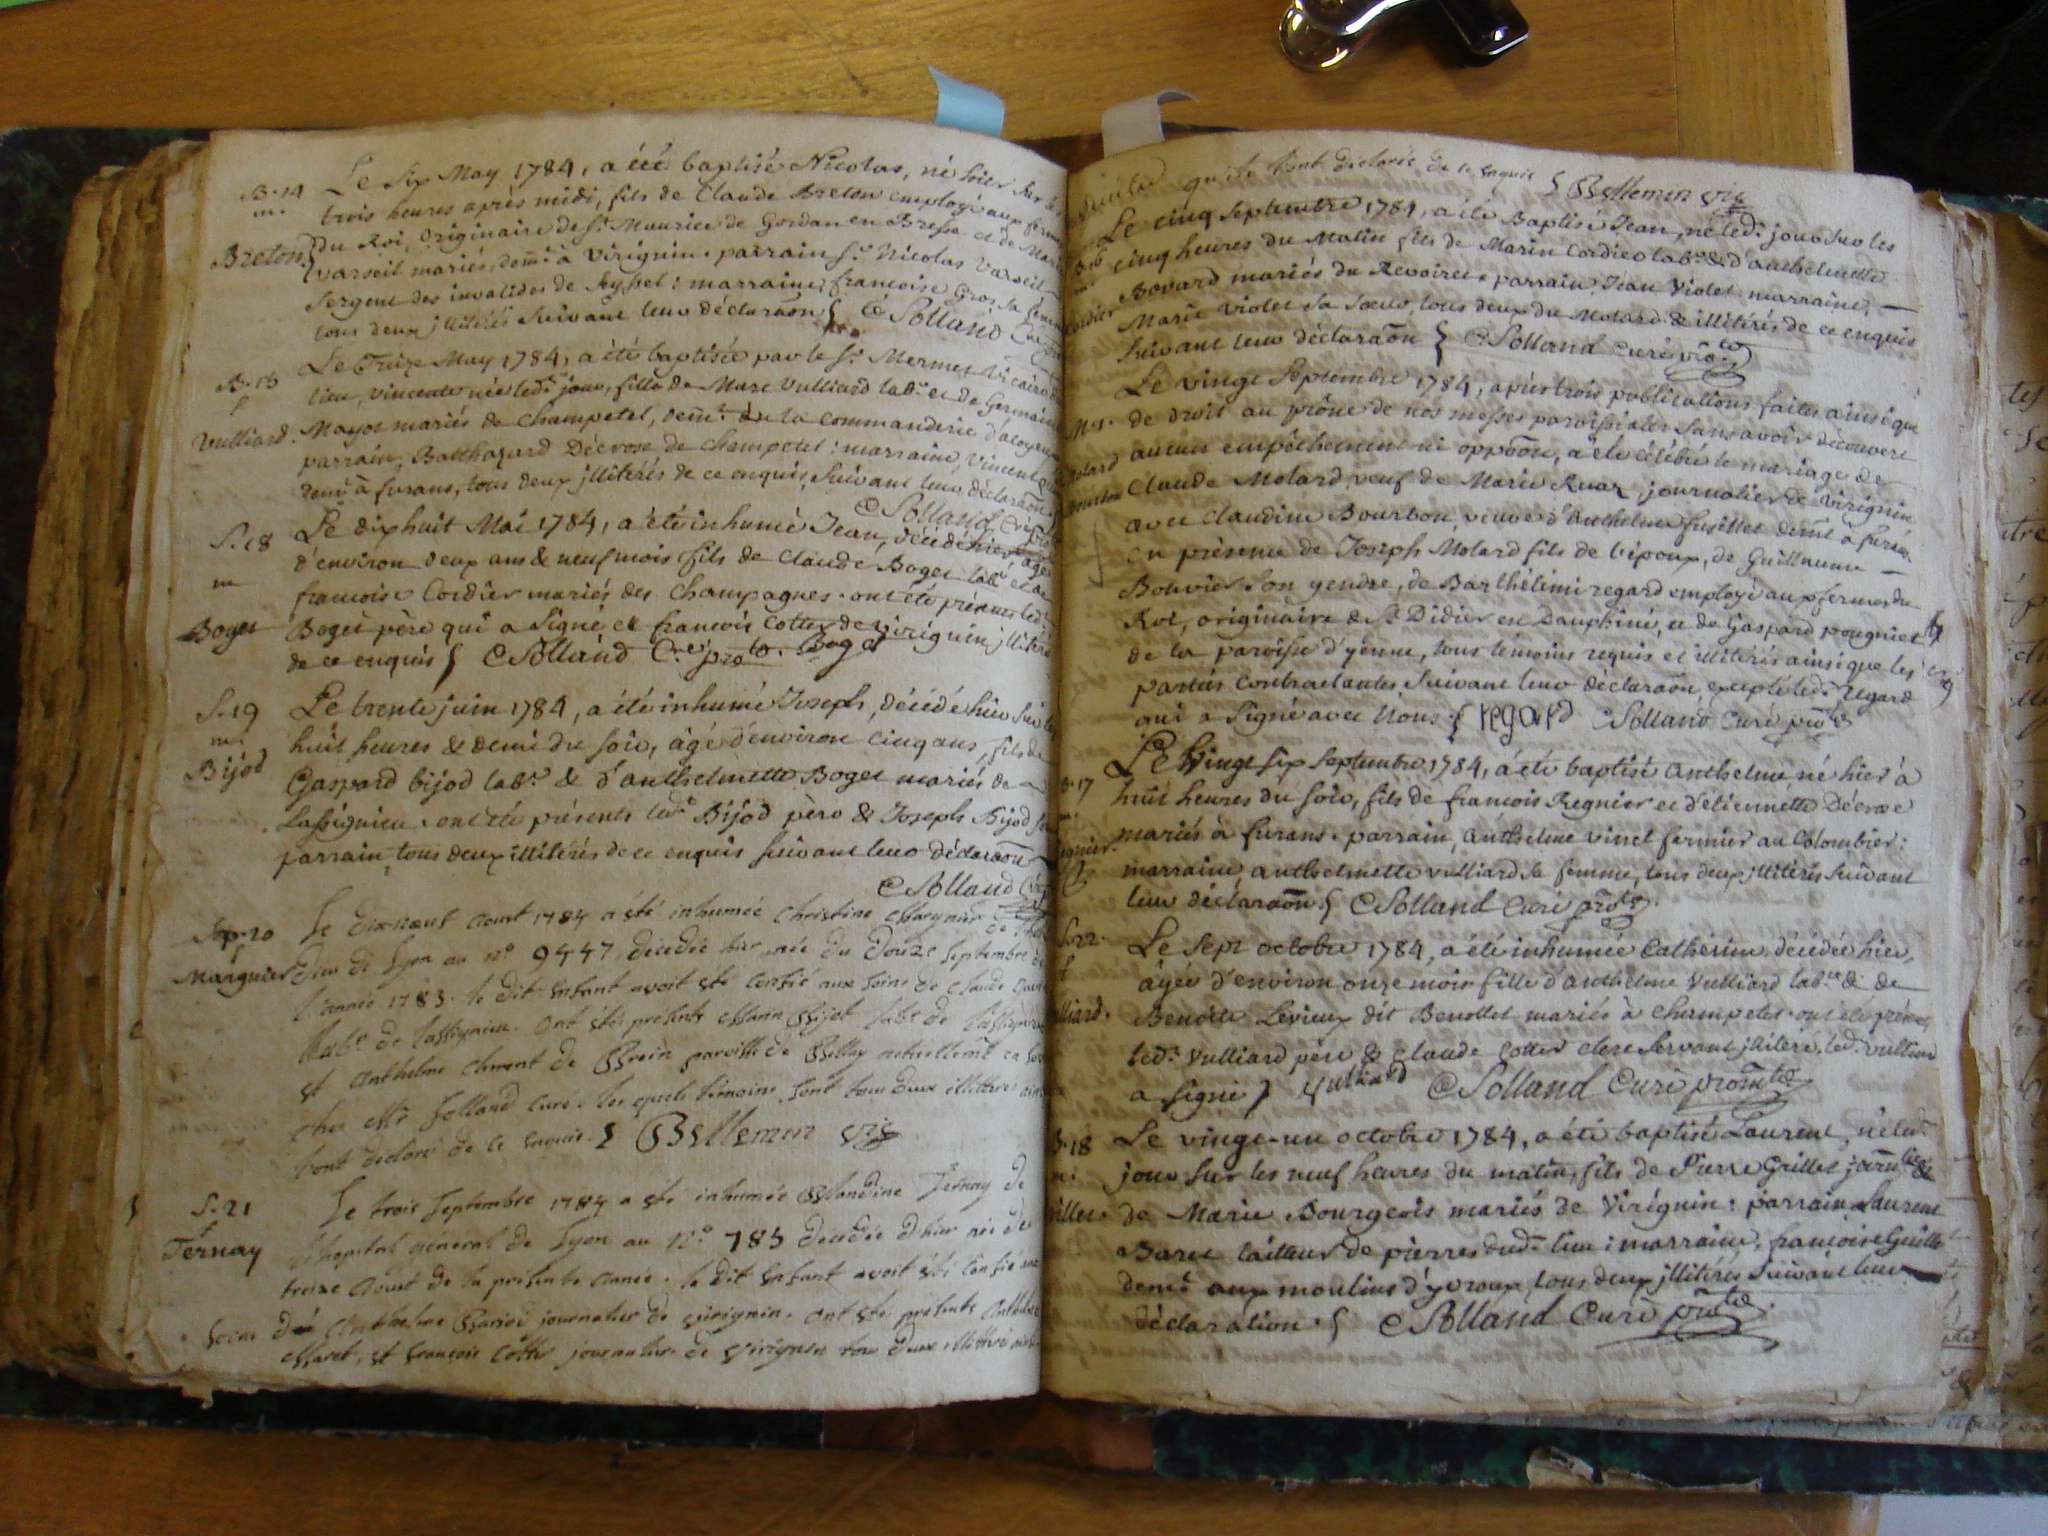 B. 14
m.
Breton
Le six May 1784, a été baptisé Nicolas, né hier sur les
trois heures après midi, fils de Claude Breton employé aux fermes
du Roi, originaire de St. Maurice de Gordan en Bresse et de Marie
varseil mariés, demt. à Virignin. parrain Sr. Nicolas varseil
Sergent des invalides de Seyssel : marraine, francoise Gros sa femme
tous deux jllitérés suivant leur déclaraõn CSolland Curé
B. 15
f
Vulliard.
Le Treize May 1784, a été baptisée par le Sr. Mermet Vicaire
lieu, vincente née ledt. jour, fille de Marc Vulliard labr. et de Germaine
Mayot mariés de Champetel, demt. de la Commanderie d'acoyeu
parrain, Balthazard Décrose de Champetel : marraine, vincente
demt. à furans, tous deux jllitérés de ce enquis, suivant leur déclaraõn
CSolland Curé
S. 18
m
Boget
Le dix huit Mai 1784, a été inhumé Jean, décédé hier, agé
d'environ deux ans & neuf mois fils de Claude Boget labr. et de
francoise Cordier mariés des Champagnes. ont été présens led.
Boget père qui a signé et francois Cotter de virignin, jllitéré
de ce enquis CSolland Boget
S. 19
m.
Bijod
Le trente juin 1784, a été inhumé Joseph, décédé hier sur les
huit heures & demi du soir, âgé d'environ cinq ans, fils de
Gaspard bijod labr. & d'anthelmette Boget mariés de
Lassignieu. ont été présents ledt. Bijod père & Joseph Bijod son
parrain, tous deux illitérés de ce enquis suivant leur déclaraõn
CSolland Curé
Sep. 20
f
Marguier
Le dix-neuf aout 1784 a été inhumée Christine Marguier de l'hôtel
Dieu de Lyon au no. 9447 décédée hier née du Douze septembre de
l'année 1783. le dit enfant avoit été confié aux soins de Claude
labr. de Lassignieu. ont été présents Marin Bijot labr. de Lassignieu
et Anthelme Clment de Brein paroisse de Belley actuellemt. en
chez Mr Solland curé. les quels témoins sont tous deux illitérés ainsi
l'ont déclaré de ce enquis. Bellemin vic
S. 21
f
Ternay
Le trois septembre 1784 a été inhumée Blandine Ternay de
l'hopital général de Lyon au no. 785 décédée d'hier née de
treize aoust de la présente année. le dit enfant avoit été confié aux
soins de Anthelme journalier de virignin. ont été présents Anthelme
Maret, et françois Cotter journalier de Virignin tous deux illitérés
qu'ils l'ont déclaré de ce enquis Bellemin vic
B. 16
m.
Cordier
Le cinq septembre 1784, a été Baptisé Jean, né led. jour sur les
cinq heures du Matin fils de Marin Cordier labr. & d'anthelmette
Bovard mariés du Revoiret. parrain Jean Violet marraine,
Marie Violet sa sœur, tous deux du Molard & illitérés de ce enquis
suivant leur déclaraõn CSolland Curé
M.
Molard
Bourbon
Le vingt septembre 1784, après trois publications faites ainsi que
de droit au prône de nos messes paroissiales sans avoir découvert
aucun empêchement ni oppoõn, a été célébré le mariage de
Claude Molard, veuf de Marie Ruaz journalier de virignin
avec Claudine Bourbon, veuve d'Anthelme fusillet demt. à furans
en présence de Joseph Molard fils de l'époux, de Guillaume
Bouvier son gendre, de Barthélimi regard employé aux fermes du
Roi, originaire de St. Didier en Dauphiné, et de Gaspard pougniet
de la paroisse d'yenne, tous témoins requis et illitérés ainsi que les
parties contractantes suivant leur déclaraõn, excepté led. regard
qui a signé avec Nous. regard CSolland Curé
B. 17
m.
Regnier
Le vingt six septembre 1784, a été baptisé anthelme né hier à
huit heures du soir, fils de francois Regnier et d'étiennette Décroze
mariés à furans. parrain, anthelme vinet fermier au Colombier :
marraine, anthelmette vulliard sa femme, tous deux jllitérés suivant
leur déclaraõn CSolland Curé
S. 22.
f
Vulliard.
Le sept octobre 1784, a été inhumée Catherine décédée hier,
âgée d'environ onze mois fille d'anthelme Vulliard labr. & de
Benoite Levieux dit Benottet mariés à Champetel. ont été présens
led. Vulliard père & Claude Cotter clerc servant jllitéré, led. vulliard
a signé Vulliard CSolland Curé
B. 18
m.
Grillet
Le vingt-un octobre 1784, a été baptisé Laurent, né led.
jour sur les neuf heures du matin, fils de Pierre Grillet journlier &
de Marie Bourgeois mariés de Virignin : parrain Laurent
Baret tailleur de pierres dud. lieu : marraine, francoise Grillet
demt. aux moulins d'yvroux, tous deux jllitérés suivant leur
déclaration. CSolland Curé